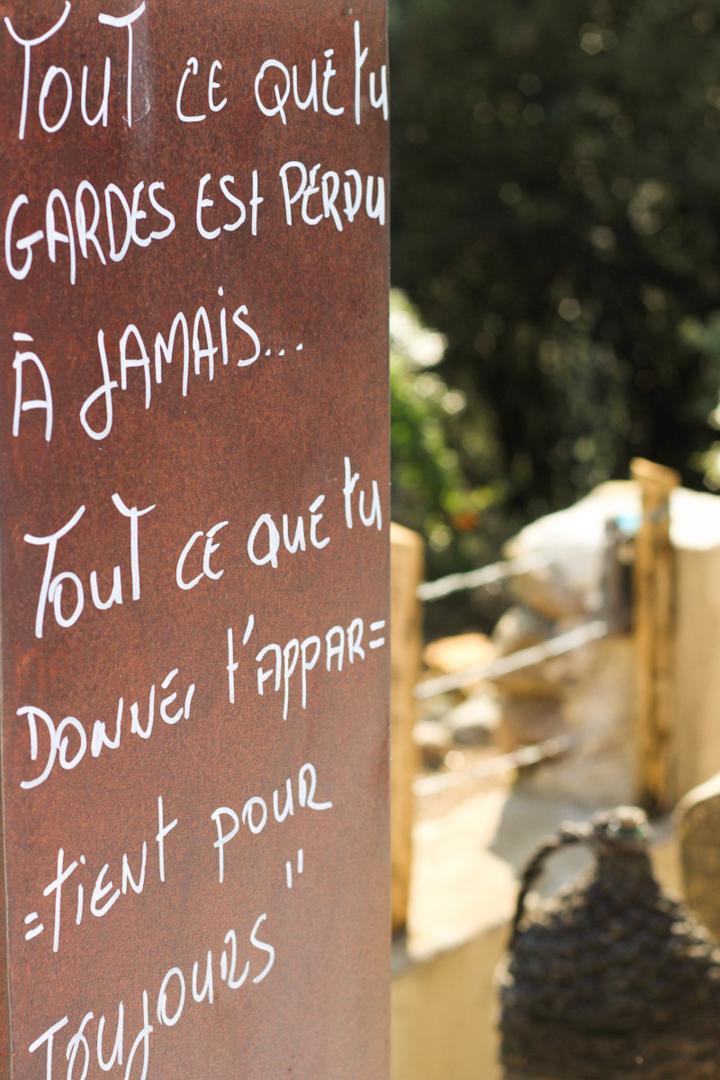 TOUT CE QUE tU
GARDES ESt PERDU
À JAMAIS...
TOUT CE QUE tU
DONNES t'APPAR=
=tiENt POUR
TOUJOURS "